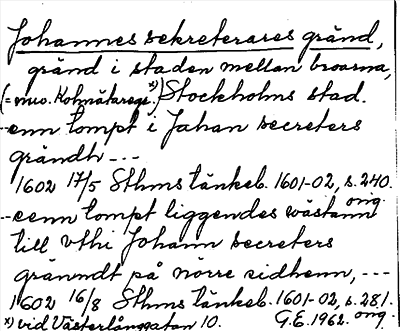 Johannes sekreterares gränd,
gränd i staden mellan broarna,
(= nuv. Kolmätaregr. x)) Stockholms stad.
--enn tompt i Jahan secreters
grändh ---
1602 17/5 Sthms tänkeb. 1601-02, s. 240.
orig.
--eenn tompt liggendes wästann
till vthi Johann secreters
gränndt på nörre sidhenn, ---
1602 16/8 Sthms tänkeb. 1601-02, s. 281.
orig.
x) vid Västerlånggatan 10. G.E. 1962.